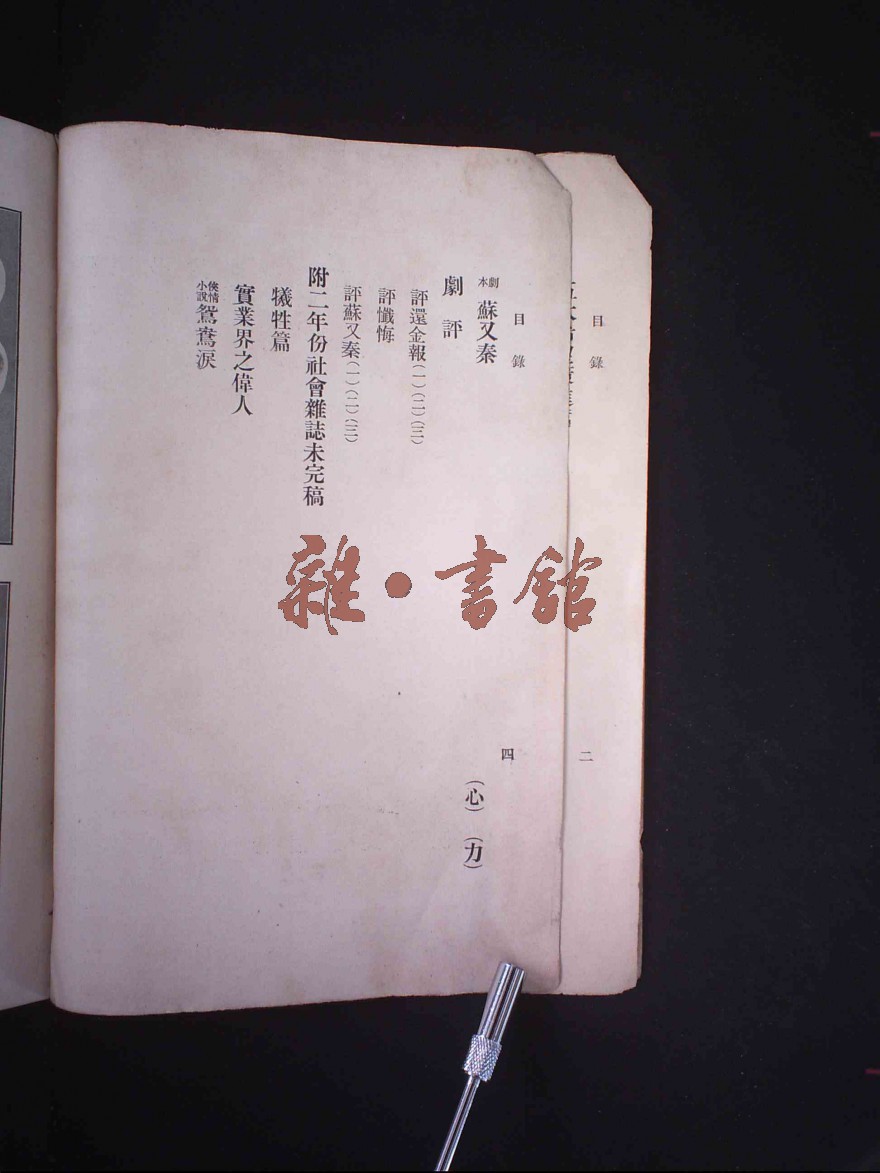 目錄
二
目錄
四
劇本 蘇又秦
(心)(力)
劇評
評還金報(一)(二)(三)
評懺悔
評蘇又秦(一)(二)(三)
附二年份社會雜誌未完稿
犧牲篇
實業界之偉人
俠情小說 鴛鴦淚
雜·書館